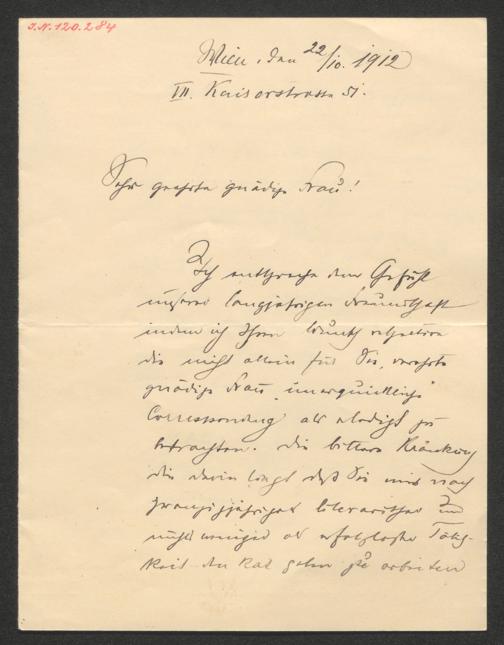 J.N. 120.284
Wien, den 22/10. 1912
VII. Kaiserstrasse 51.
Sehr geehrte gnädige Frau!
Ich entspreche dem Gefühl
unserer langjährigen Freundschaft
indem ich Ihren Wunsch respectire
die nicht allein für Sie, verehrte
gnädige Frau "unerquickliche"
Correspondenz als erledigt zu
betrachten. Die bittere Kränkung
die darin liegt daß Sie mir nach
zwanzigjähriger literarischer
nichts weniger als erfolgloser Tätig-
keit den Rat geben zu arbeiten